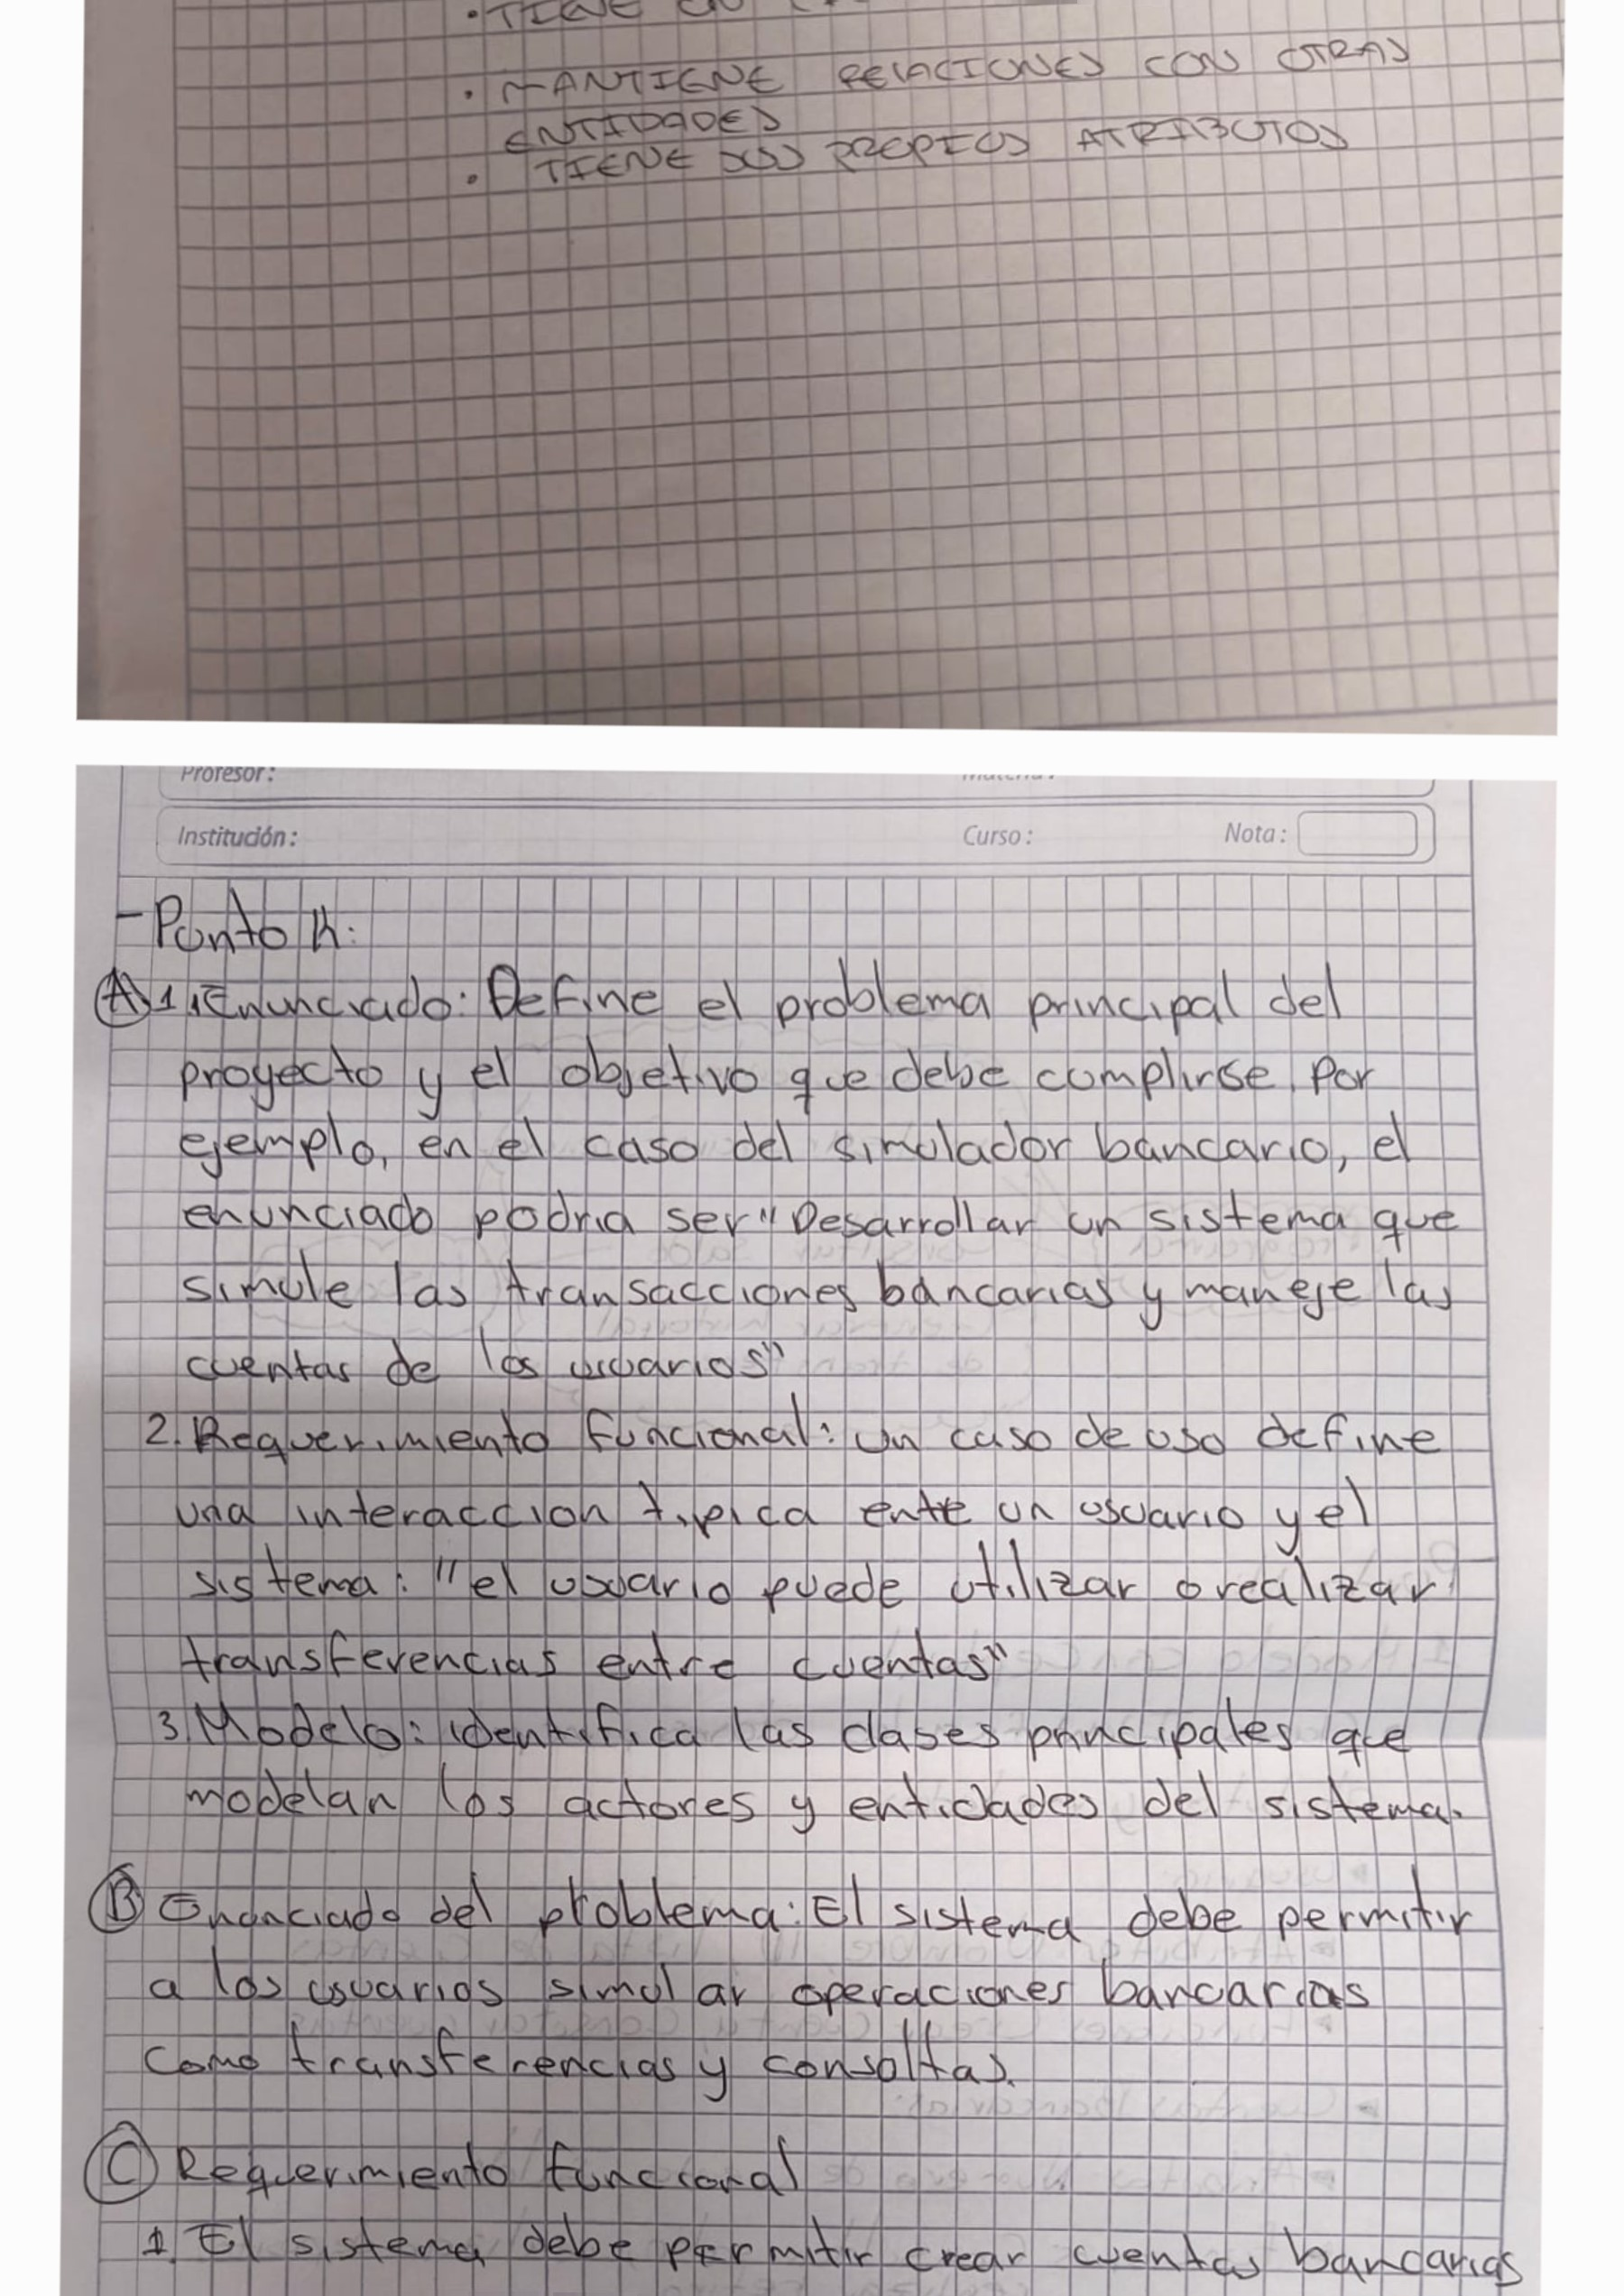 • TIENE UN
• MANTIENE RELACIONES CON OTRAS
ENTIDADES
• TIENE SUS PROPIOS ATRIBUTOS
Profesor:
Institución: Curso: Nota:
- Punto 4:
A) 1. Enunciado: Define el problema principal del
proyecto y el objetivo que debe cumplirse, por
ejemplo, en el caso del simulador bancario, el
enunciado podria ser "Desarrollar un sistema que
simule las transacciones bancarias y maneje las
cuentas de los usuarios"
2. Requerimiento funcional: un caso de uso define
una interaccion tipica ente un usuario y el
sistema: "el usuario puede utilizar o realizar
transferencias entre cuentas"
3. Modelo: identifica las clases principales que
modelan los actores y entidades del sistema.
B) Enunciado del problema: El sistema debe permitir
a los usuarios simular operaciones bancarias
como transferencias y consultas.
C) Requerimiento funcional
1. El sistema debe permitir crear cuentas bancarias